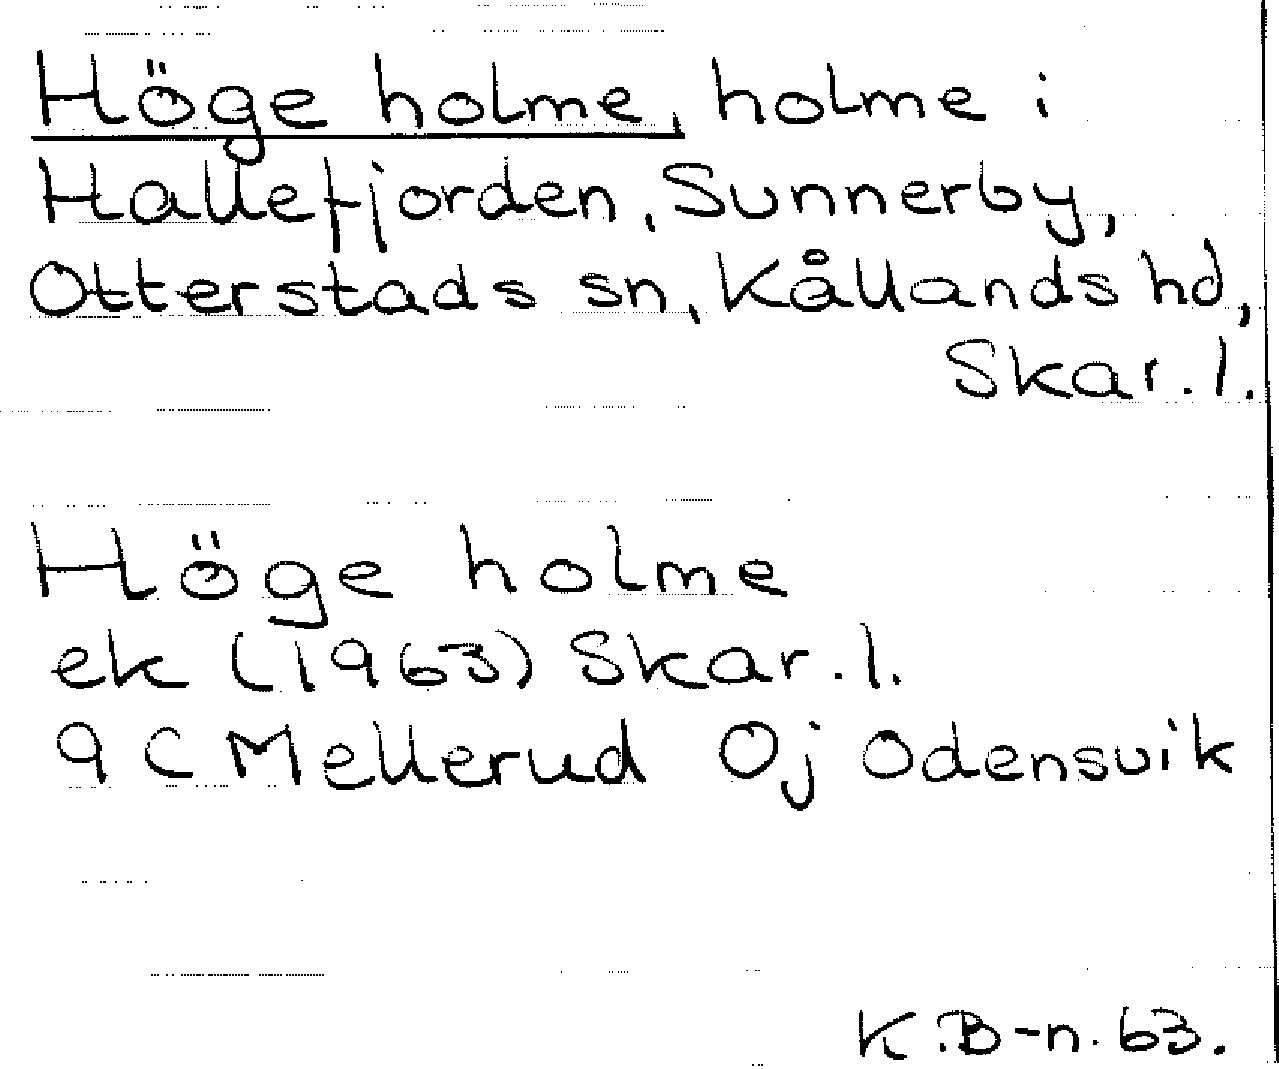 Höge holme, holme i
Hallefjorden, Sunnerby,
Otterstads sn, Kållands hd,
Skar. l.
Höge holme
ek (1963) Skar. l.
9 C Mellerud Oj Odensvik
K.B-n. 63.